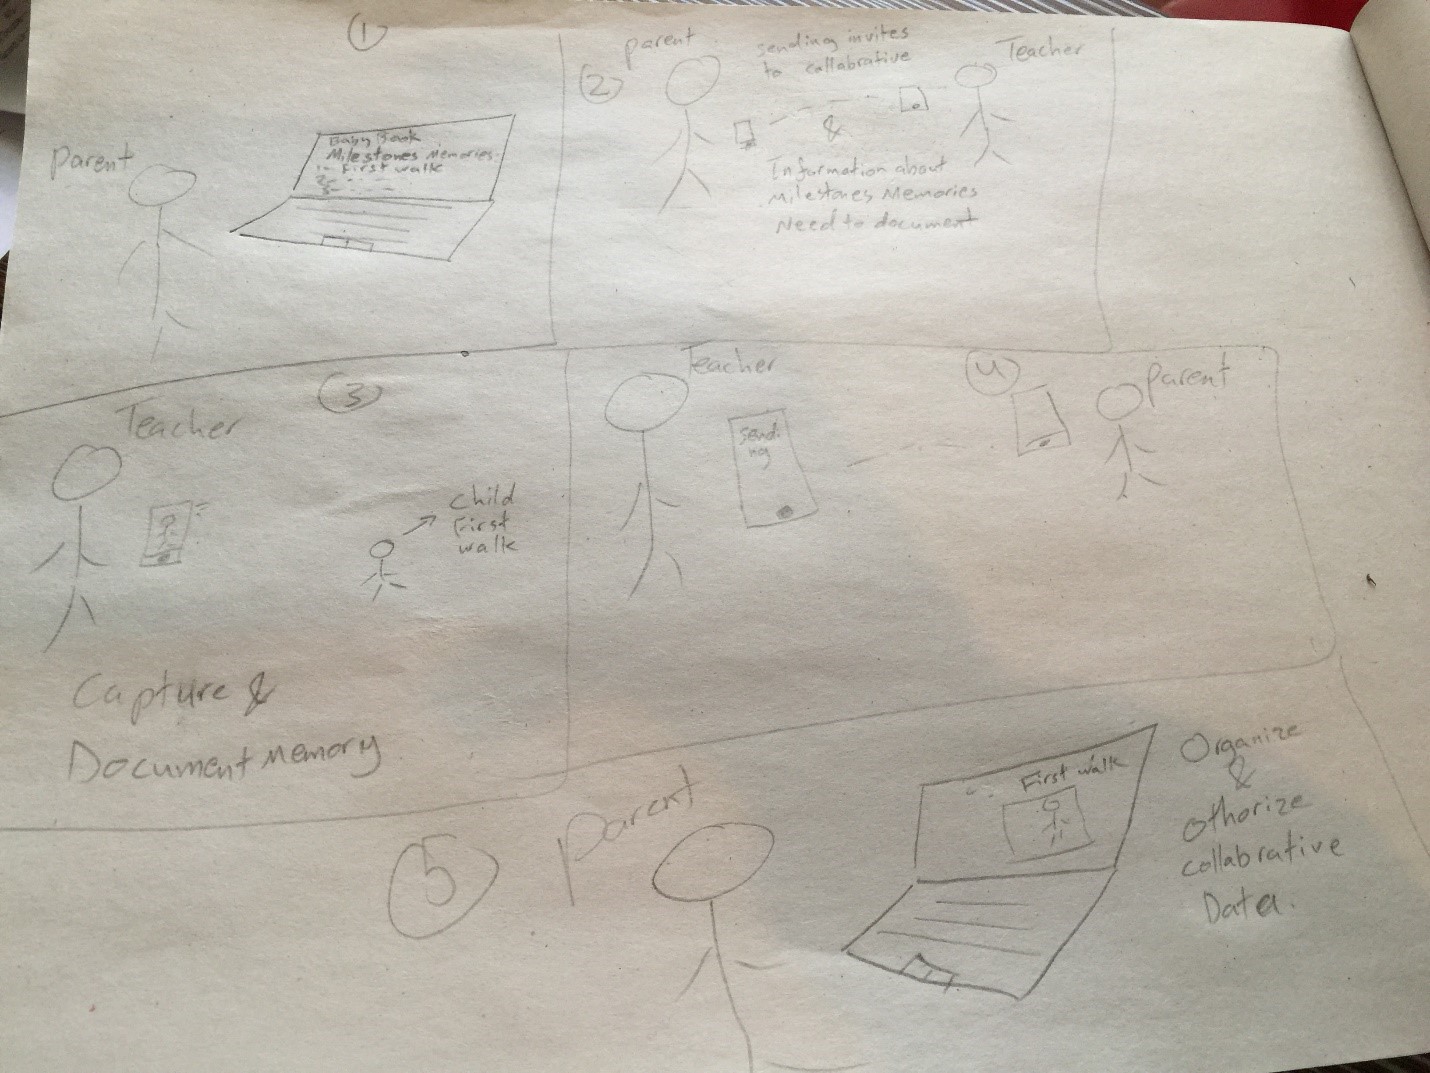 1
Parent
Baby Book
Milestones Memories
1- First walk
2-
3-
2
parent
sending invites
to collabrative
Teacher
&
Information about
Milestones Memories
Need to document
3
Teacher
child
First
walk
Capture &
Document Memory
Teacher
sendi
ng
4
parent
5
parent
First walk
Organize
&
Othorize
collabrative
Data.